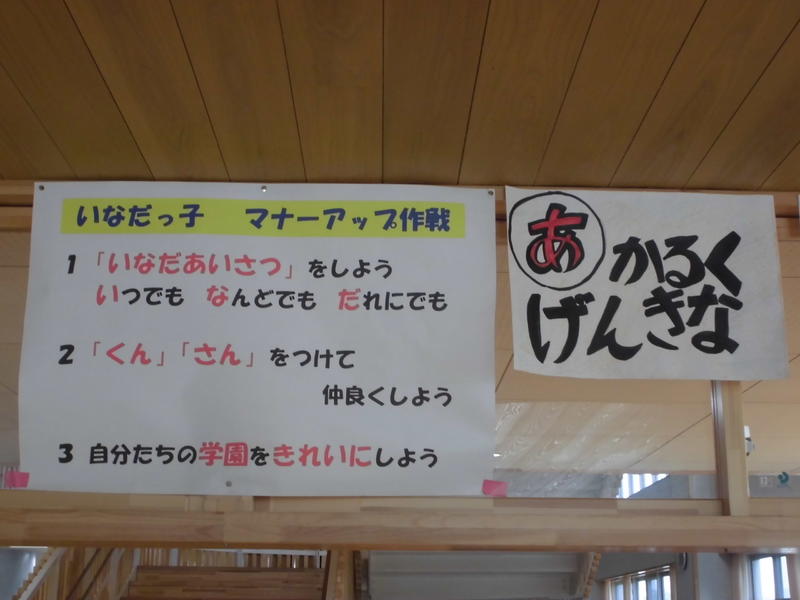 いなだっ子 マナーアップ作戦
1 「いなだあいさつ」をしよう
いつでも なんどでも だれにでも
2 「くん」「さん」をつけて
仲良くしよう
3 自分たちの学園をきれいにしよう
あかるく
げんきな